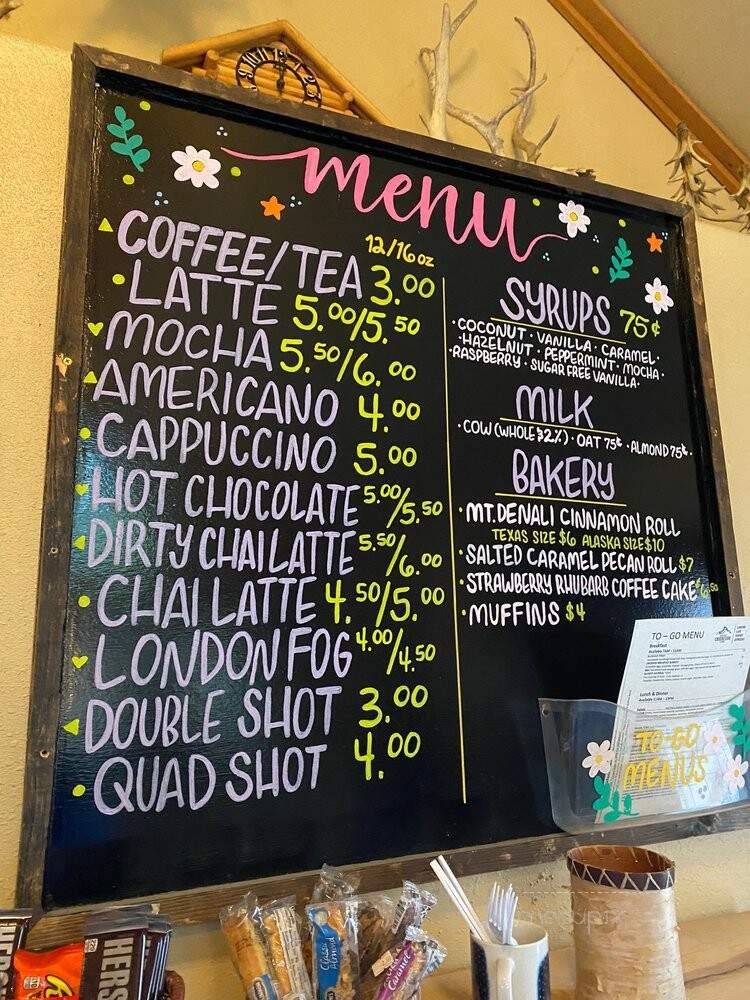 menu
12/16 oz
COFFEE/TEA 3.00
LATTE 5.00/5.50
MOCHA 5.50/6.00
AMERICANO 4.00
CAPPUCCINO 5.00
HOT CHOCOLATE 5.00/5.50
DIRTY CHAI LATTE 5.50/6.00
CHAI LATTE 4.50/5.00
LONDON FOG 4.00/4.50
DOUBLE SHOT 3.00
QUAD SHOT 4.00
SYRUPS 75¢
·COCONUT·VANILLA·CARAMEL·
·HAZELNUT·PEPPERMINT·MOCHA·
·RASPBERRY·SUGAR FREE VANILLA·
MILK
·COW (WHOLE & 2%)·OAT 75¢·ALMOND 75¢·
BAKERY
·MT. DENALI CINNAMON ROLL
TEXAS SIZE $6 ALASKA SIZE $10
·SALTED CARAMEL PECAN ROLL $7
·STRAWBERRY RHUBARB COFFEE CAKE
·MUFFINS $4
TO-GO MENU
Breakfast
Lunch & Dinner
TO-GO
MENUS
HERS